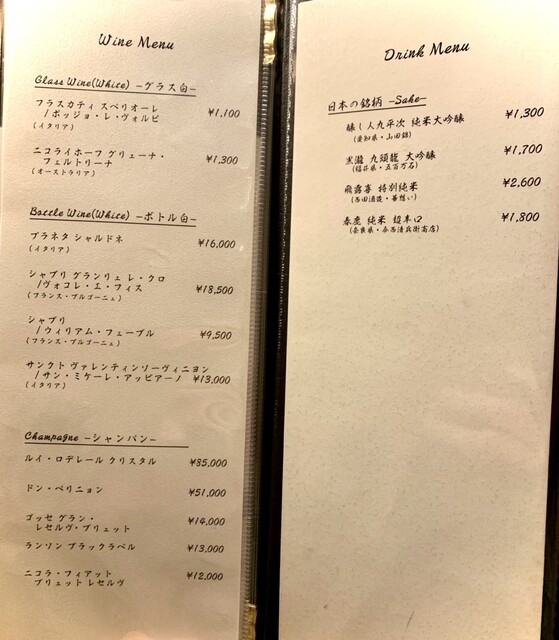 Wine Menu
Glass Wine(White) -グラス白-
フラスカティ スペリオーレ
/ポッジョ・レ・ヴォルピ ¥1,100
(イタリア)
ニコライホーフ グリューナ・
フェルトリーナ ¥1,300
(オーストラリア)
Bottle Wine(White) -ボトル白-
プラネタ シャルドネ ¥16,000
(イタリア)
シャブリ グランリュ レ・クロ
/ヴォコレ・エ・フィス ¥18,500
(フランス・ブルゴーニュ)
シャブリ
/ウィリアム・フェーブル ¥9,500
(フランス・ブルゴーニュ)
サンクト ヴァレンティンソーヴィニヨン
/サン・ミケーレ・アッピアーノ ¥13,000
(イタリア)
Champagne -シャンパン-
ルイ・ロデレール クリスタル ¥85,000
ドン・ペリニョン ¥51,000
ゴッセ グラン・
レセルヴ・ブリュット ¥14,000
ランソン ブラックラベル ¥13,000
ニコラ・フィアット
ブリュット レセルヴ ¥12,000
Drink Menu
日本の銘柄 -Sake-
醸し人九平次 純米大吟醸 ¥1,300
(愛知県・山田錦)
黒龍 九頭龍 大吟醸 ¥1,700
(福井県・五百万石)
飛露喜 特別純米 ¥2,600
(西田酒造・華想い)
春鹿 純米 超辛口 ¥1,800
(奈良県・今西清兵衛商店)